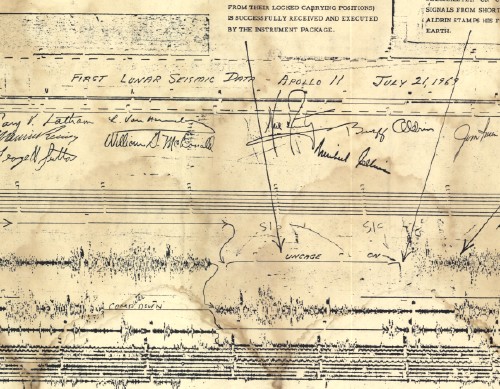 FROM THEIR LOCKED CARRYING POSITIONS)
IS SUCCESSFULLY RECEIVED AND EXECUTED
BY THE INSTRUMENT PACKAGE.
SIGNALS FROM SHORT
ALDRIN STAMPS HIS F
EARTH.
FIRST LUNAR SEISMIC DATA APOLLO 11 JULY 21, 1969
Gary V. Latham
William G. McDonald
Buzz Aldrin
Michael Collins
George H. Sutton
UNCAGE ON